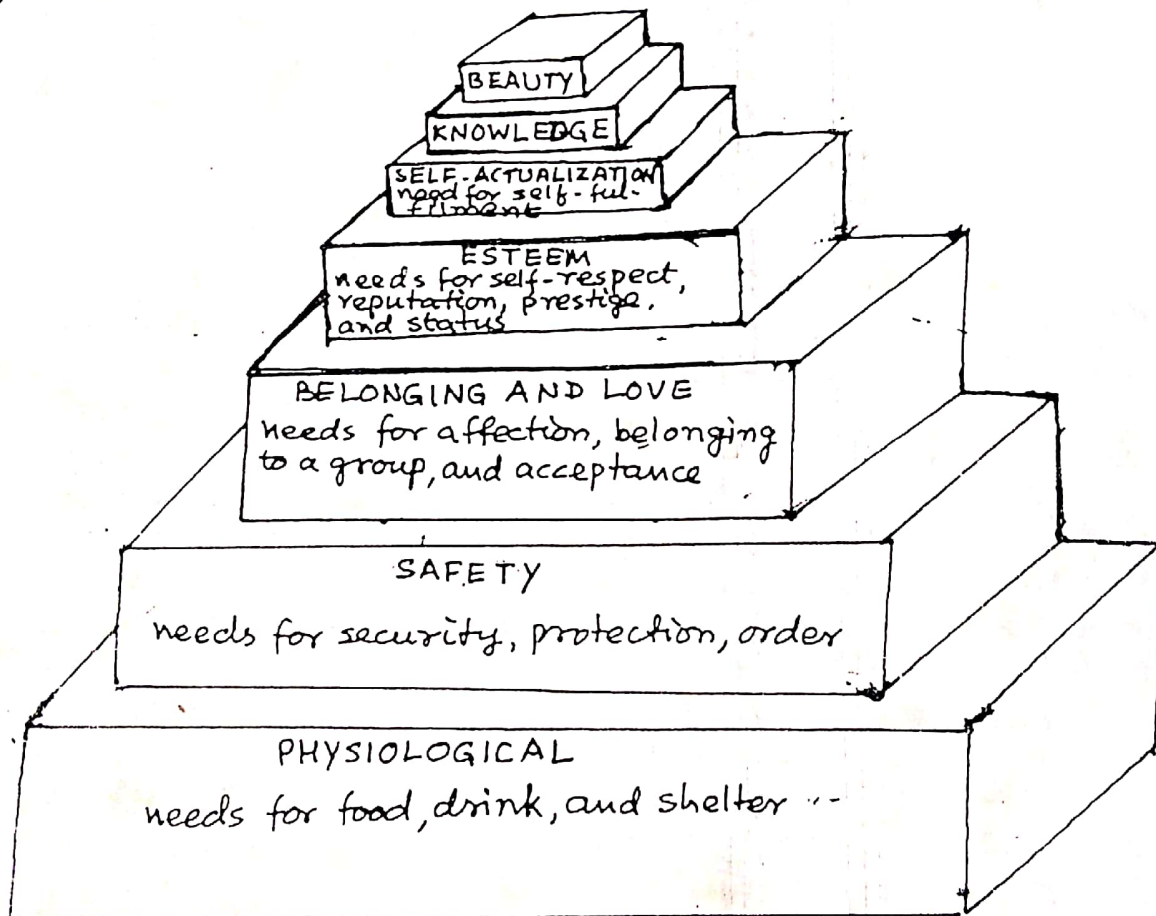 BEAUTY
KNOWLEDGE
SELF-ACTUALIZATION
need for self-ful-
filment
ESTEEM
needs for self-respect,
reputation, prestige,
and status
BELONGING AND LOVE
needs for affection, belonging
to a group, and acceptance
SAFETY
needs for security, protection, order
PHYSIOLOGICAL
needs for food, drink, and shelter ...